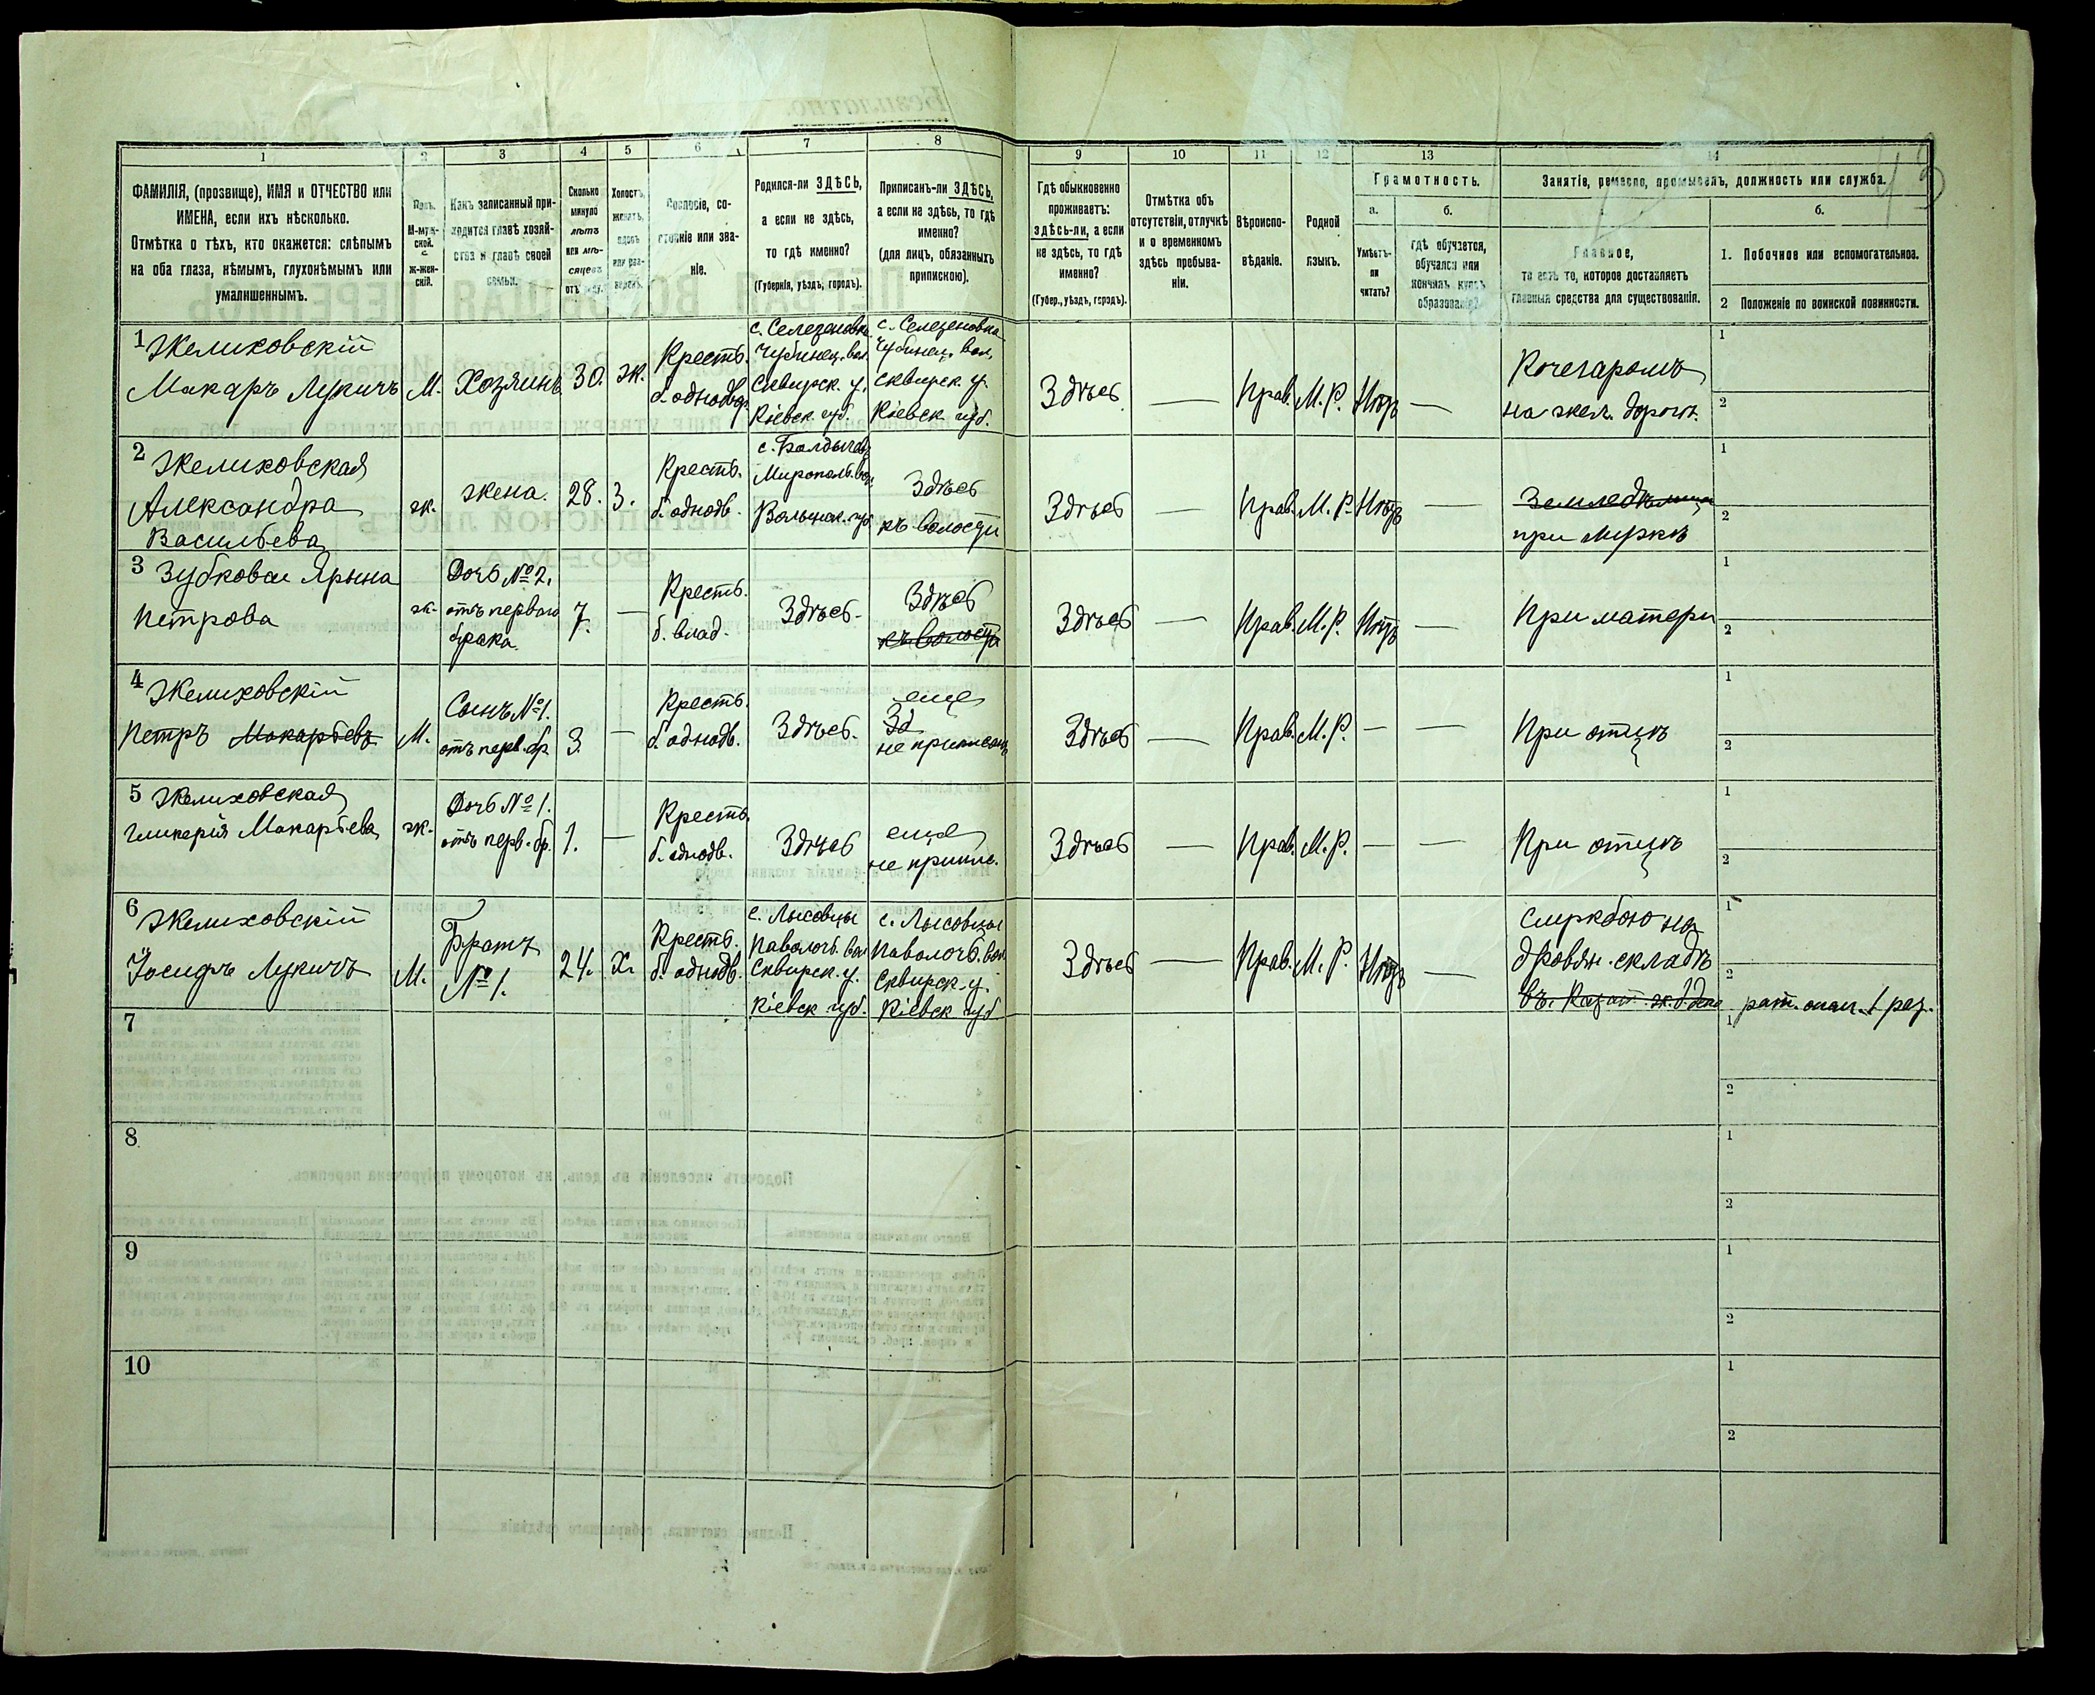 1 2 3 4 5 6 7 8 9 10 11 12 13 14
ФАМИЛІЯ, (прозвище), ИМЯ и ОТЧЕСТВО или
ИМЕНА, если ихъ нѣсколько.
Отмѣтка о тѣхъ, кто окажется: слѣпымъ
на оба глаза, нѣмымъ, глухонѣмымъ или
умалишеннымъ.
Полъ.
М-муж-
ской.
ж-жен-
скій.
Какъ записанный при-
ходится главѣ хозяй-
ства и главѣ своей
семьи.
Сколько
минуло
лѣтъ
или мѣ-
сяцевъ
отъ роду.
Холостъ,
женатъ,
вдовъ
или раз-
веденъ.
Сословіе, со-
стояніе или зва-
ніе.
Родился-ли ЗДѢСЬ,
а если не здѣсь,
то гдѣ именно?
(Губернія, уѣздъ, городъ).
Приписанъ-ли ЗДѢСЬ,
а если не здѣсь, то гдѣ
именно?
(для лицъ, обязанныхъ
припискою).
Гдѣ обыкновенно
проживаетъ:
здѣсь-ли, а если
не здѣсь, то гдѣ
именно?
(Губер., уѣздъ, городъ).
Отмѣтка объ
отсутствіи, отлучкѣ
и о временномъ
здѣсь пребыва-
ніи.
Вѣроиспо-
вѣданіе.
Родной
языкъ.
Грамотность.
а.
Умѣетъ-
ли
читать?
б.
гдѣ обучается,
обучался или
кончилъ курсъ
образованія?
Занятіе, ремесло, промыселъ, должность или служба.
Главное,
то есть то, которое доставляетъ
главныя средства для существованія.
б.
1. Побочное или вспомогательное.
2 Положеніе по воинской повинности.
1 Желиховскій
Макаръ Лукичъ
М.
Хозяинъ
30.
ж.
Крестъ.
б. однодв.
с. Селезеновка
Чубинец. вол.
Сквирск. у.
Кіевск. губ.
с. Селезеновка
Чубинец. вол.
Сквирск. у.
Кіевск. губ.
Здѣсь
—
Прав.
М. Р.
Нѣтъ
—
Кочегаромъ
на жел. дорогѣ.
1
2
2 Желиховская
Александра
Васильева
ж.
жена.
28.
З.
Крестъ.
б. однодв.
Мирополь. вол.
Волынск. губ.
Здѣсь
къ волости
Здѣсь
—
Прав.
М. Р.
Нѣтъ
—
при мужѣ
1
2
3 Зубкова Ярына
Петрова
ж.
Дочь №2.
отъ перваго
брака.
7.
—
Крестъ.
б. влад.
Здѣсь
Здѣсь
къ волости
Здѣсь
—
Прав.
М. Р.
Нѣтъ
—
При матери
1
2
4 Желиховскій
Петръ Макарьевъ
М.
Сынъ №1.
отъ перв. бр.
3.
—
Крестъ.
б. однодв.
Здѣсь.
еще
Зд
не приписанъ
Здѣсь
—
Прав.
М. Р.
—
—
При отцѣ
1
2
5 Желиховская
Гликерія Макарьева
ж.
Дочь №1.
отъ перв. бр.
1.
—
Крестъ.
б. однодв.
Здѣсь
еще
не припис.
Здѣсь
—
Прав.
М. Р.
—
—
При отцѣ
1
2
6 Желиховскій
Іосифъ Лукичъ
М.
Братъ
№1.
24.
Х.
Крестъ.
б. однодв.
с. Лисовцы
Паволочь. вол.
Сквирск. у.
Кіевск. губ.
с. Лисовцы
Паволочь. вол.
Сквирск. у.
Кіевск. губ.
Здѣсь
—
Прав.
М. Р.
Нѣтъ
—
Службою на
дровян. складѣ
1
2
рат. опол. 1 раз.
7
1
2
8
1
2
9
1
2
10
1
2